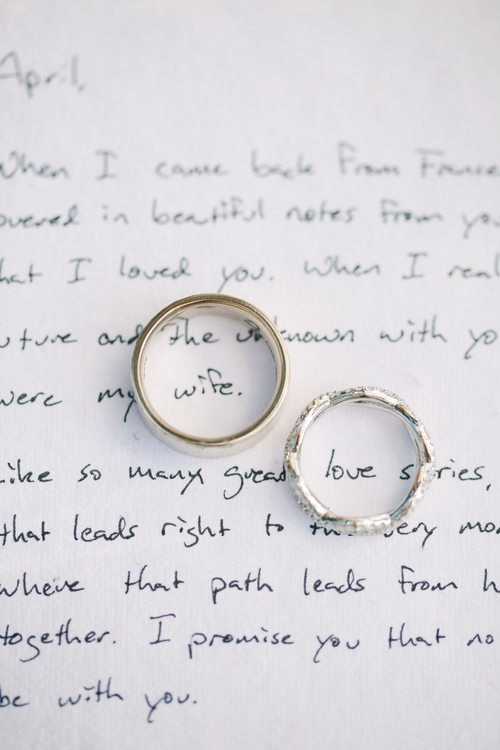 April,
When I came back from France
overed in beautiful notes from you
hat I loved you. When I real
uture and the unknown with yo
were my wife.
Like so many great love stories,
that leads right to this very mo
where that path leads from h
together. I promise you that no
be with you.